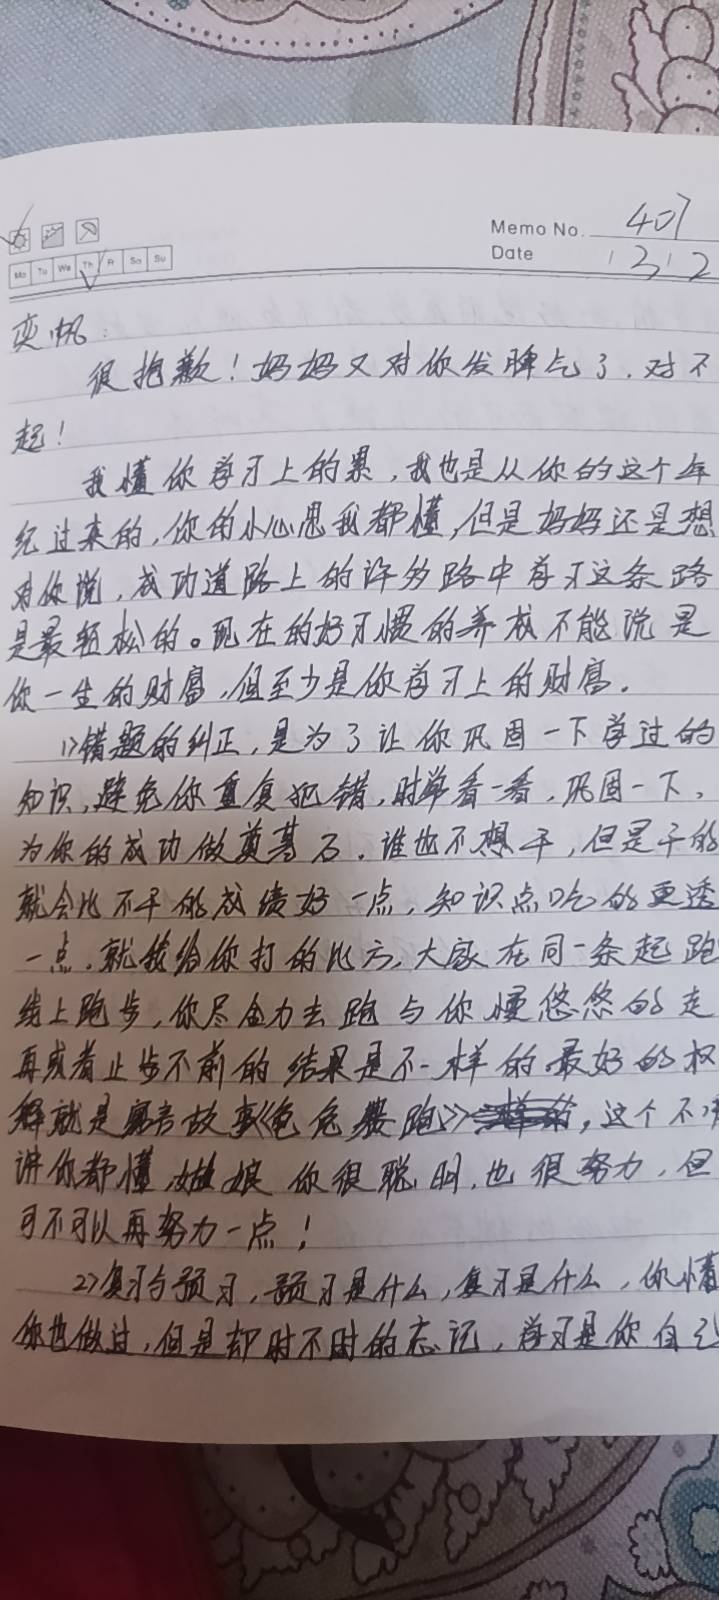 Memo No. 407
Mo Tu We Th Fr Sa Su
Date 1312
奕帆：
很抱歉！妈妈又对你发脾气了，对不
起！
我懂你学习上的累，我也是从你的这个年
纪过来的，你的小心思我都懂，但是妈妈还是想
对你说，成功道路上的许多路中学习这条路
是最轻松的。现在的好习惯的养成不能说是
你一生的财富，但至少是你学习上的财富。
1>错题的纠正，是为了让你巩固一下学过的
知识，避免你重复犯错，时常看一看，巩固一下，
为你的成功做奠基石。谁也不想干，但是干的
就会比不干的成绩好一点，知识点吃的更透
一点。就我给你打的比方，大家在同一条起跑
线上跑步，你尽全力去跑与你慢悠悠的走
再或者止步不前的结果是不一样的。最好的权
解就是寓言故事《龟兔赛跑》，这个不
讲你都懂，姑娘你很聪明，也很努力，但
可不可以再努力一点！
2>复习与预习，预习是什么，复习是什么，你懂
你也做过，但是却时不时的忘记，学习是你自己